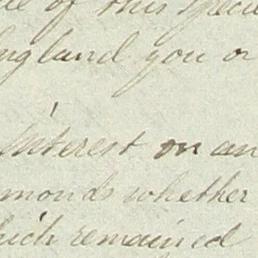 of this speci
England you or
Interest on an
monds whether
hich remained